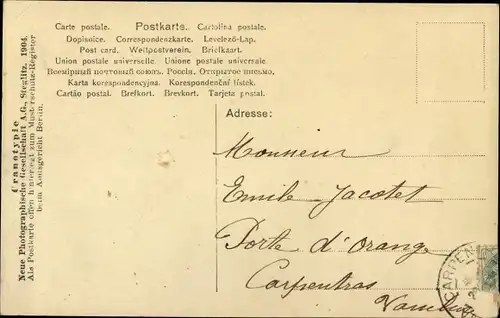 Carte postale. Postkarte. Cartolina postale.
Dopisnice. Correspondenzkarte. Levelező-Lap.
Post card. Weltpostverein. Briefkaart.
Union postale universelle. Unione postale universale.
Всемірный почтовый союзъ. Россія. Открытое письмо.
Karta korespondencyjna. Korespondenční lístek.
Cartão postal. Brefkort. Brevkort. Tarjeta postal.
Uranotypie
Neue Photographische Gesellschaft A.G., Steglitz. 1904.
Als Postkarte offen hinterlegt zum Musterschutz-Register
beim Amtsgericht Berlin.
Adresse:
Monsieur
Emile Jacotet
Porte d'Orange
Carpentras
Vaucluse
CARPEN